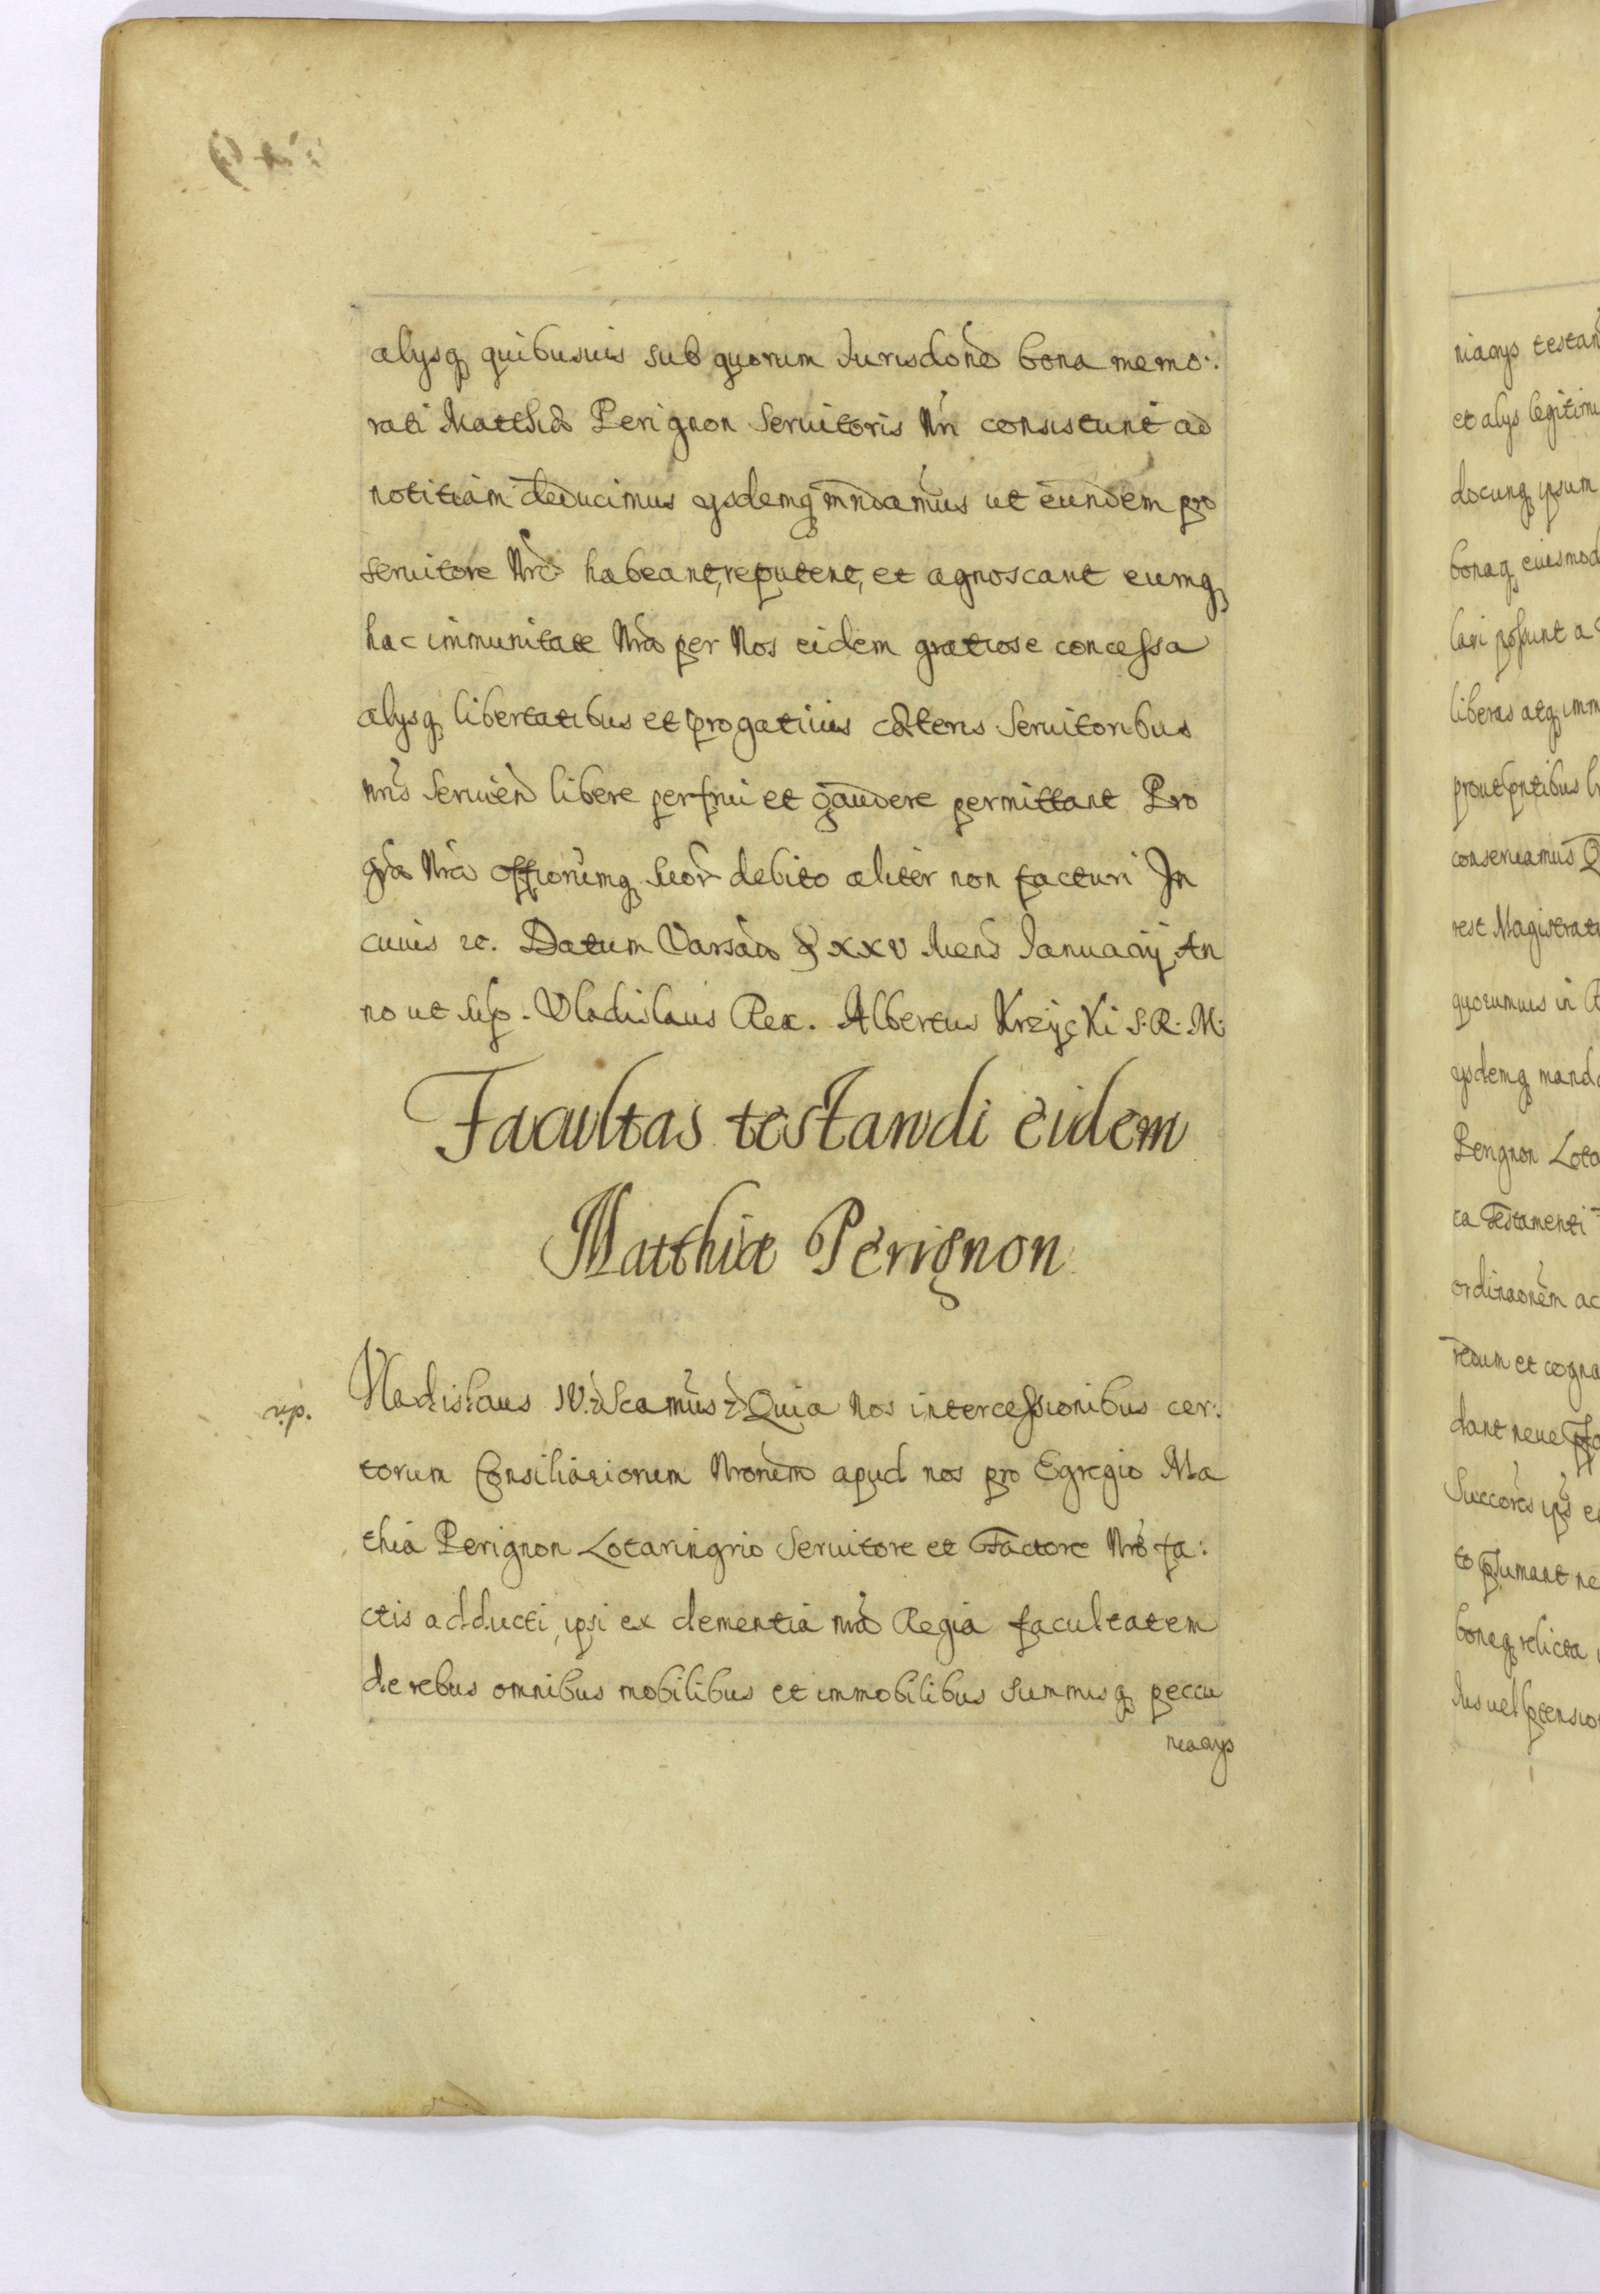 alysq quibusuis sub quorum Jurisdone bona memo:
rati Matthiæ Perignon Seruitoris Nri consistunt ad
notitiam deducimus ysdemq mndamus ut eundem pro
seruitore Nro habeant, reputent, et agnoscant eumq
hac immunitate Nra per Nos eidem gratiose concessa
alysq libertatibus et progatiuis cæteris Seruitoribus
nris Seruien libere perfrui et gaudere permittant Pro
gra Nra offiorumq suor debito aliter non facturi In
cuius rc. Datum Varsaæ XXV Mens Januarij An
no ut sup. Vladislaus Rex. Albertus Krzycki S. R. M.
Facultas testandi eidem
Matthiæ Perignon
Vladislaus IV. Scamus Quia Nos intercessionibus cer:
torum Consiliariorum Nrorum apud nos pro Egregio Ma
thia Perignon Lotaringrio Seruitore et Factore Nro fa:
ctis adducti, ipsi ex clementia nra Regia facultatem
de rebus omnibus mobilibus et immobilibus summisq peccu
niarys
niarys
et alys
docunq ipsum
bonaq
lari possunt a
liberas atq
conseruamus
rest
quorumuis in
ysdemq
Perignon
ta Testamenti
ordinaonem ac
redum et
dant neue
relicta
Jus uel